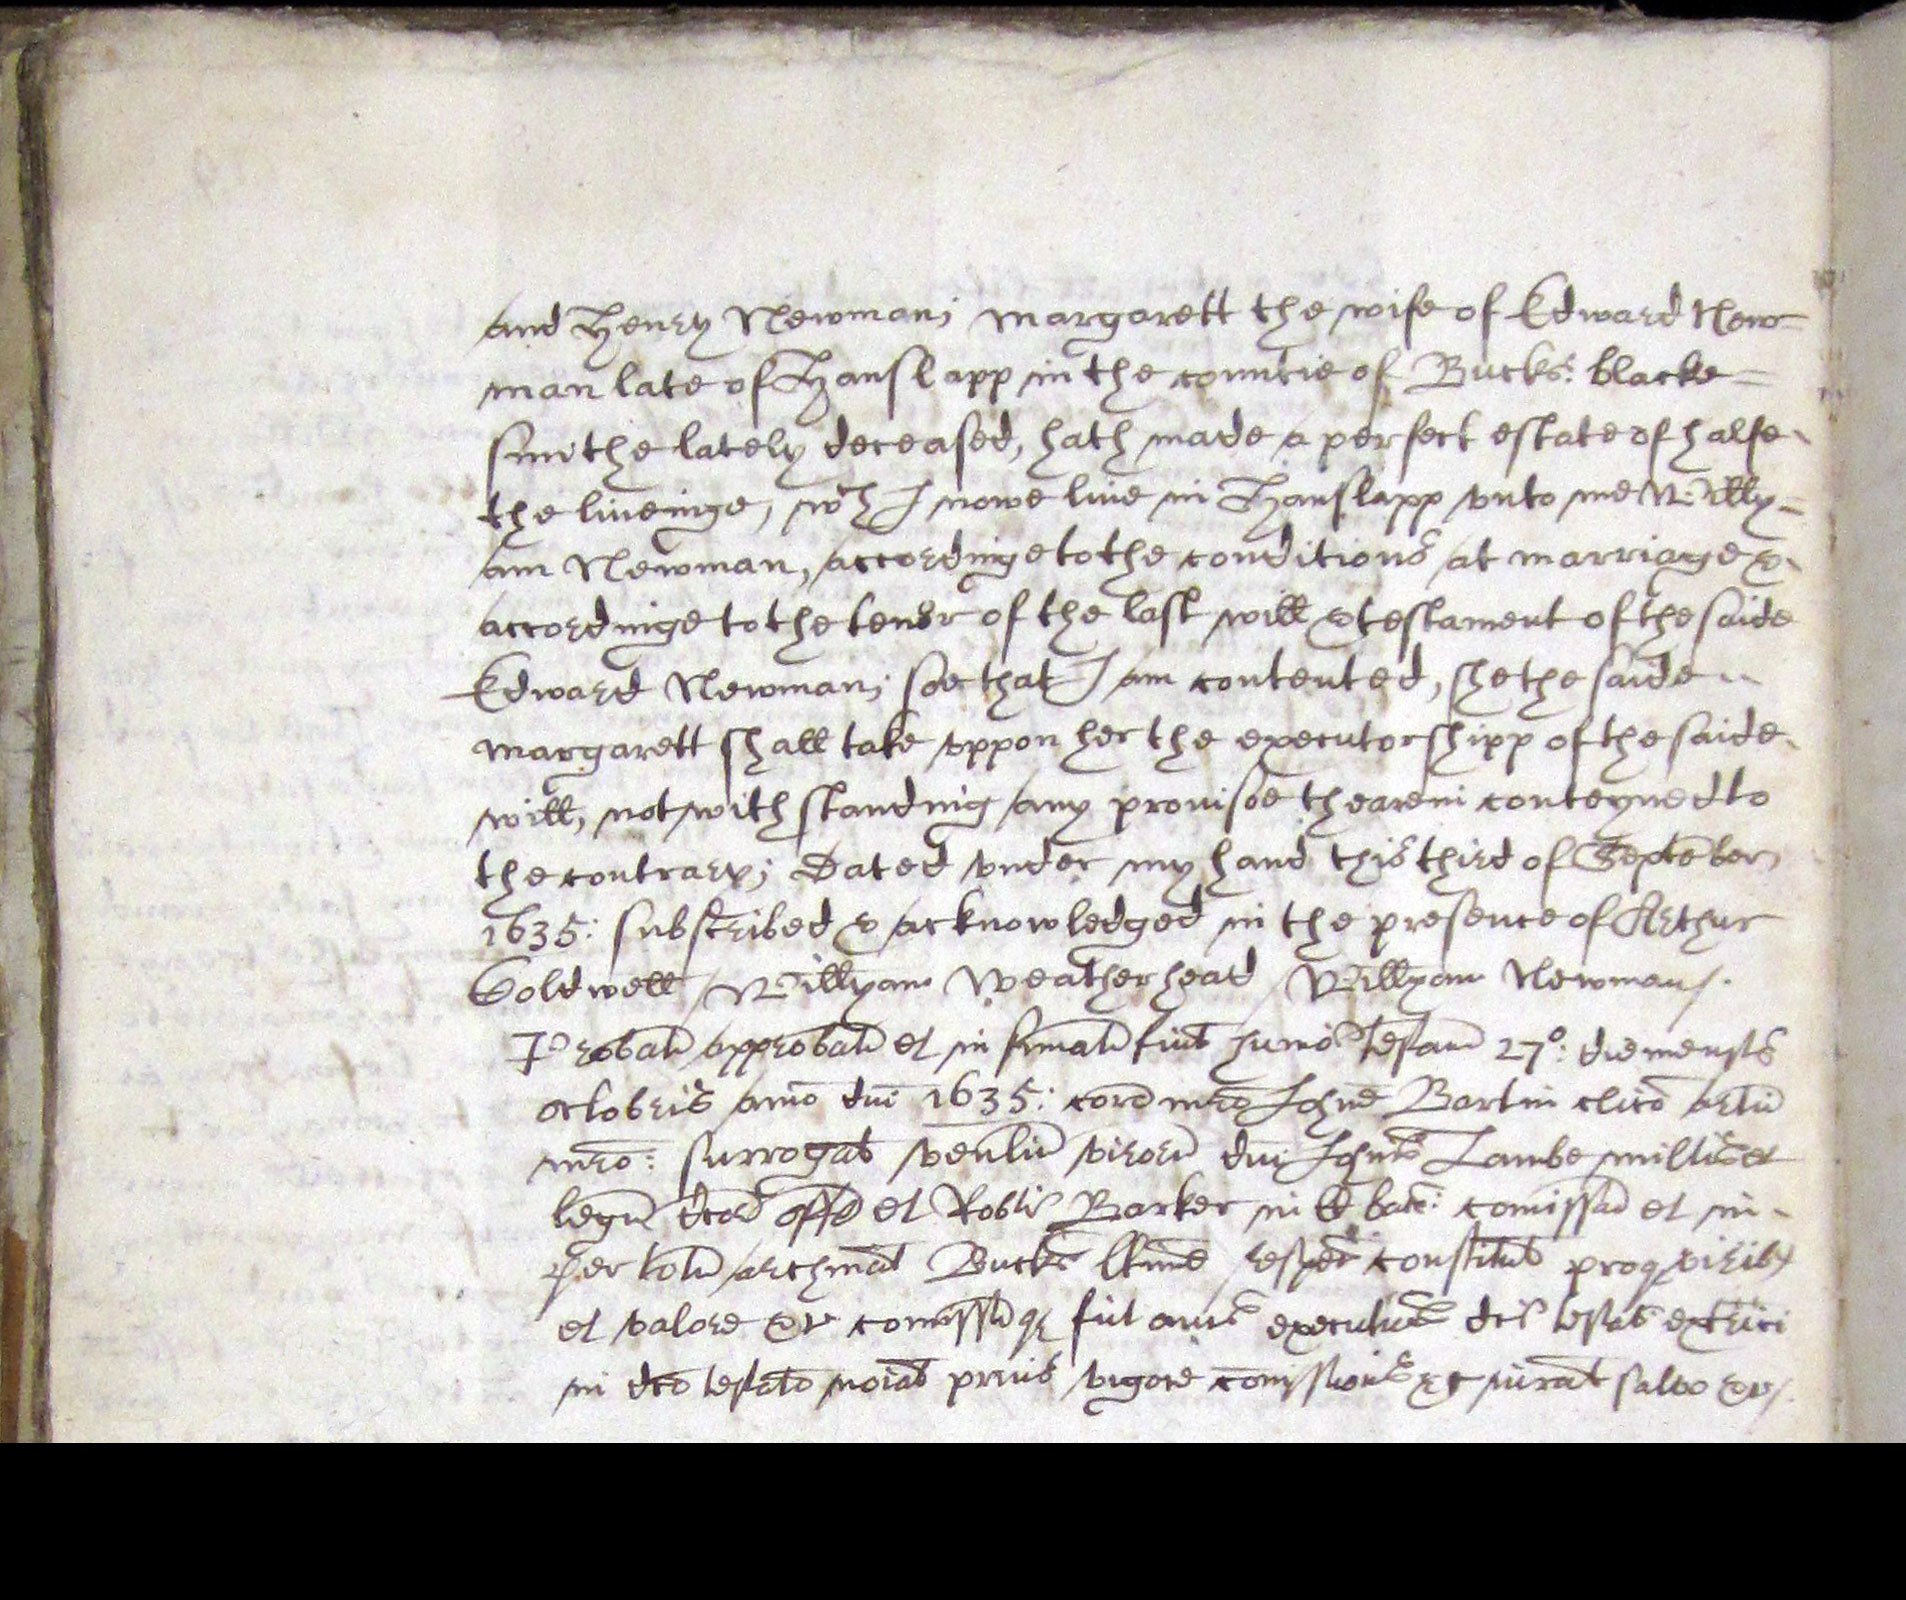 and Henry Newman; Margarett the wife of Edward New=
man late of Hanslapp in the countie of Bucks: blacke=
smithe lately deceased, hath made a perfect estate of halfe
the liueinge, wch I nowe liue in Hanslapp vnto me Willy=
am Newman, accordinge to the conditions at marriage &
accordinge to the tenor of the last will & testament of the saide
Edward Newman; soe that I am contented, she the saide
Margarett shall take vppon her the executorshipp of the saide
will, notwithstanding any prouisoe thearein conteyned to
the contrary; Dated vnder my hand this third of Septēber
1635: subscribed & acknowledged in the presence of Arthur
Goldwell / Willyam Weatherhead / Willyam Newman /.
Probatū approbatū et insinuatū fuit humōi testam 27º: die mensis
octobris anno dni 1635: corā mrō Johne Bartin clico artiū
mro: surrogat venliū virorū dni Johnis Lambe militis et
legū dcor et Robti Barker in ll bacc: comissar et in
per totū archinat Bucks ltime respec constitut
et valore &c comissaq fuit onus executionis dci testati extrici
in dco testato noiat prius vigore comissionis &c iurat saluo &c /.